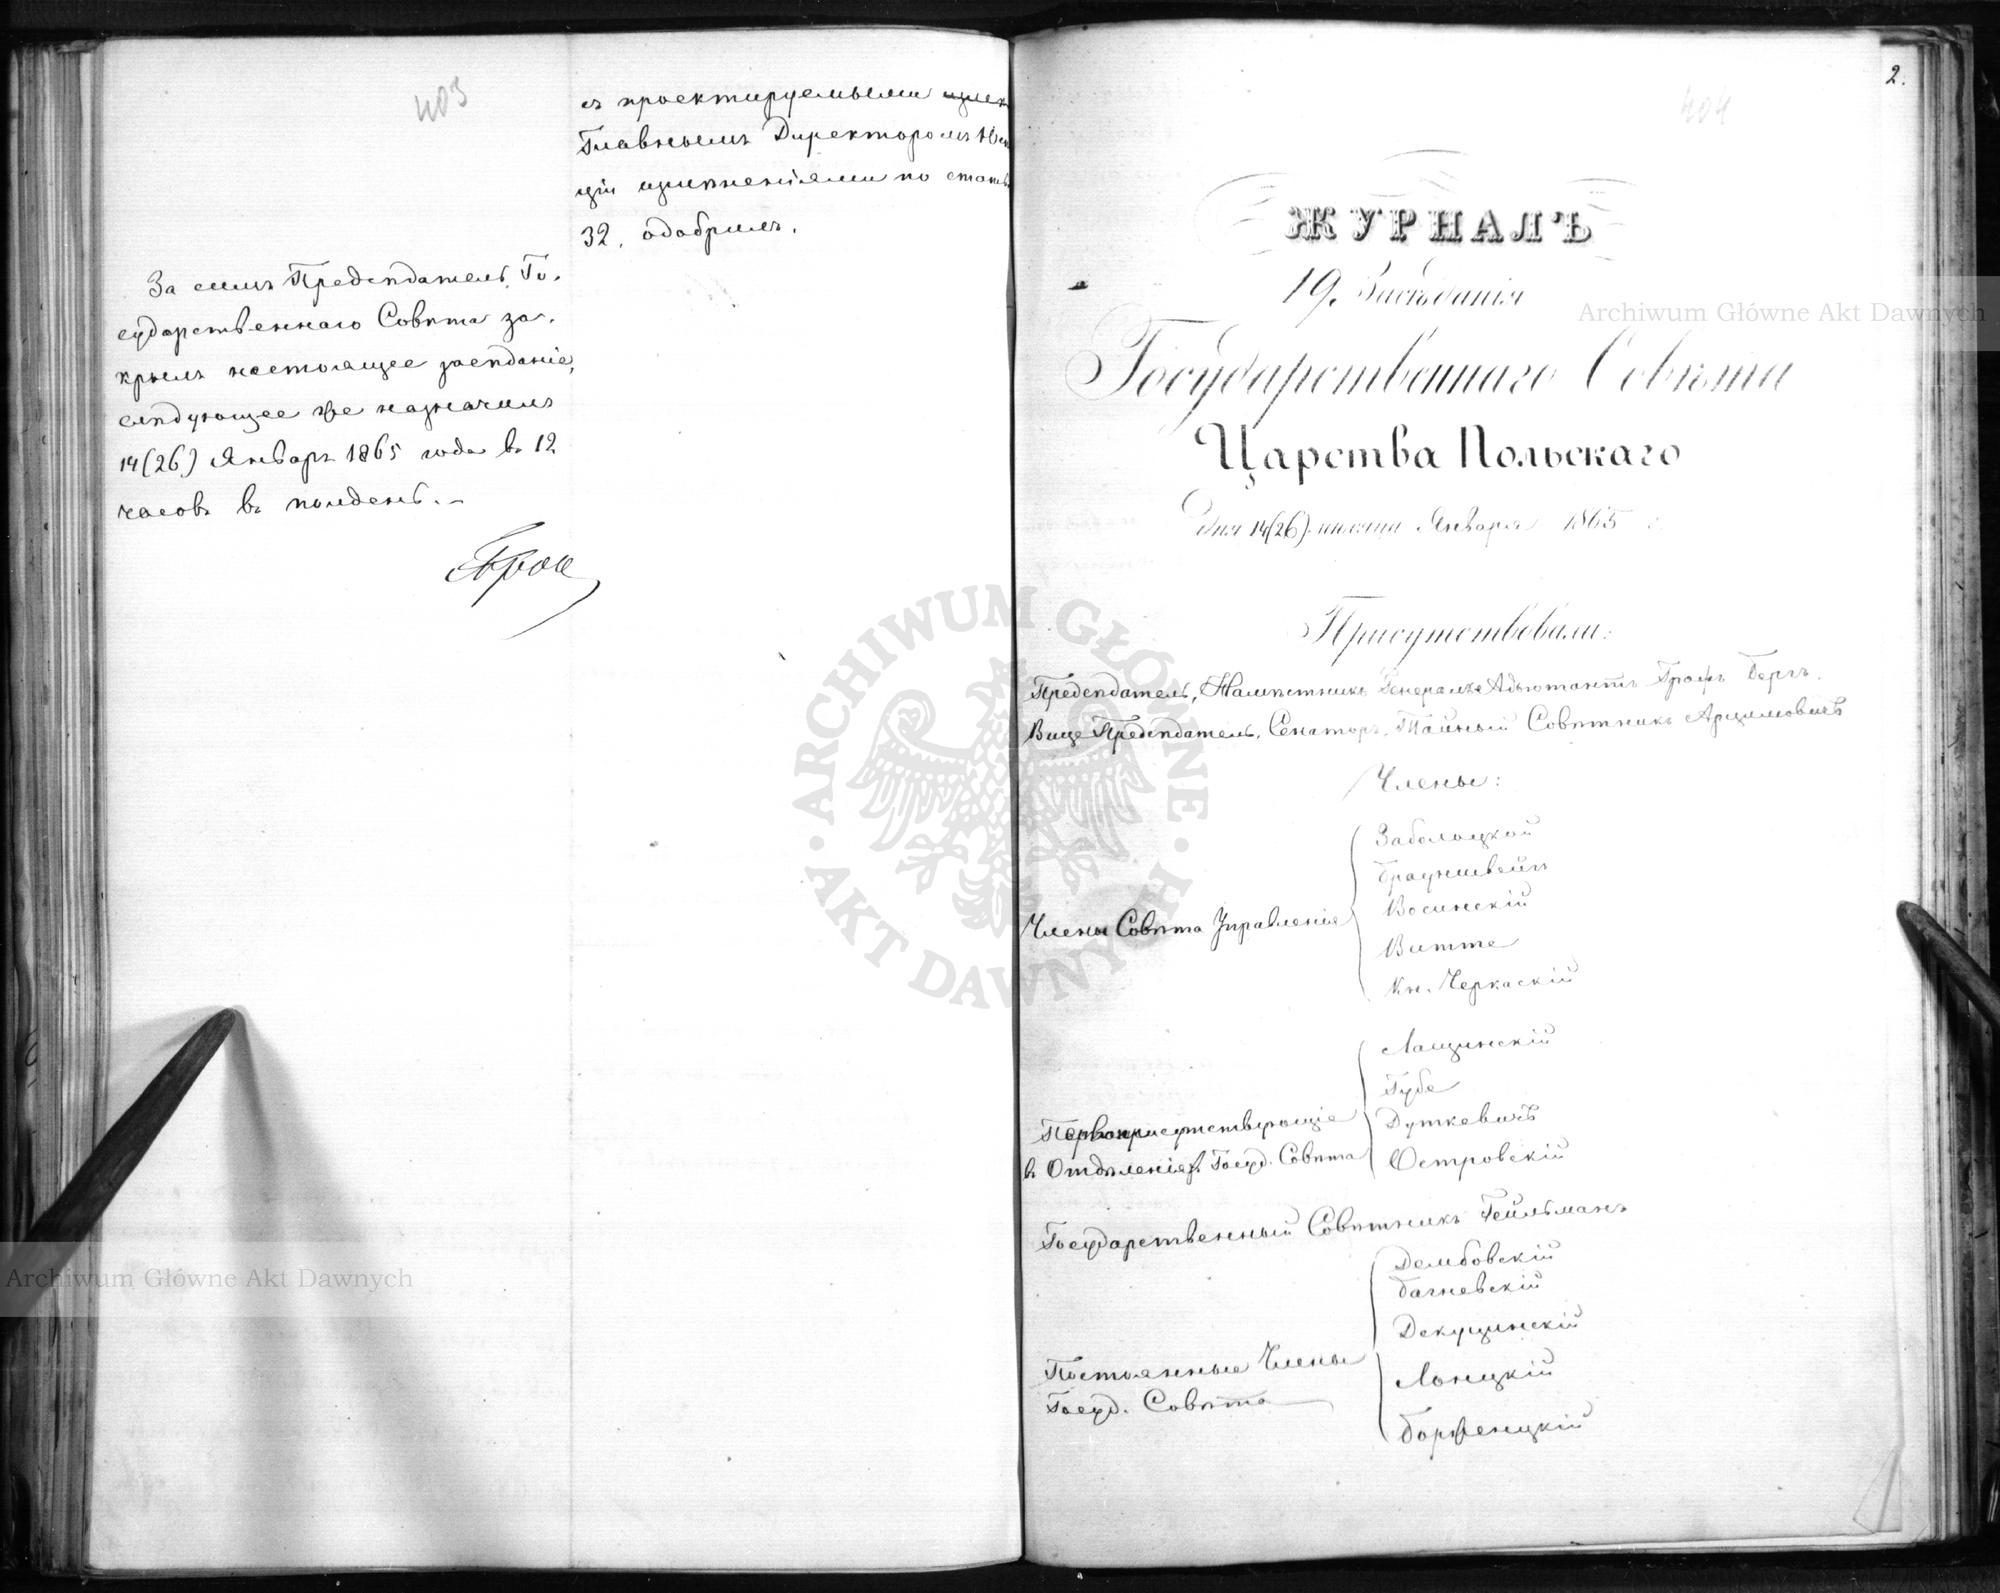 403
съ проектируемыми
Главнымъ Директоромъ
ціи измѣненіями по стать
32, одобрилъ.
За симъ Предсѣдатель Го-
сударственнаго Совѣта за-
крылъ настоящее засѣданіе,
слѣдующее же назначилъ
14(26) Январь 1865 года въ 12
часовъ въ полдень.–
2.
404
ЖУРНАЛЪ
19. Засѣданія
Государственнаго Совѣта
Царства Польскаго
дня 14(26) мѣсяца Января 1865 г.
Присутствовали:
Предсѣдатель, Намѣстникъ Генералъ Адъютантъ Графъ Бергъ.
Вице Предсѣдатель, Сенаторъ, Тайный Совѣтникъ Арцимовичъ
Члены:
Члены Совѣта Управленія
Заболоцкой
Брауншвейгъ
Восинскій
Витте
Кн. Черкаскій
Первоприсутствующіе
въ Отдѣленіяхъ Госуд. Совѣта
Лащинскій
Губе
Дуткевичъ
Островскій
Государственный Совѣтникъ Гейльманъ
Постоянные Члены
Госуд. Совѣта
Дембовскій
Багневскій
Декуцинскій
Лонцкій
Борженцкій
Archiwum Główne Akt Dawnych
ARCHIWUM GŁÓWNE AKT DAWNYCH
Archiwum Główne Akt Dawnych